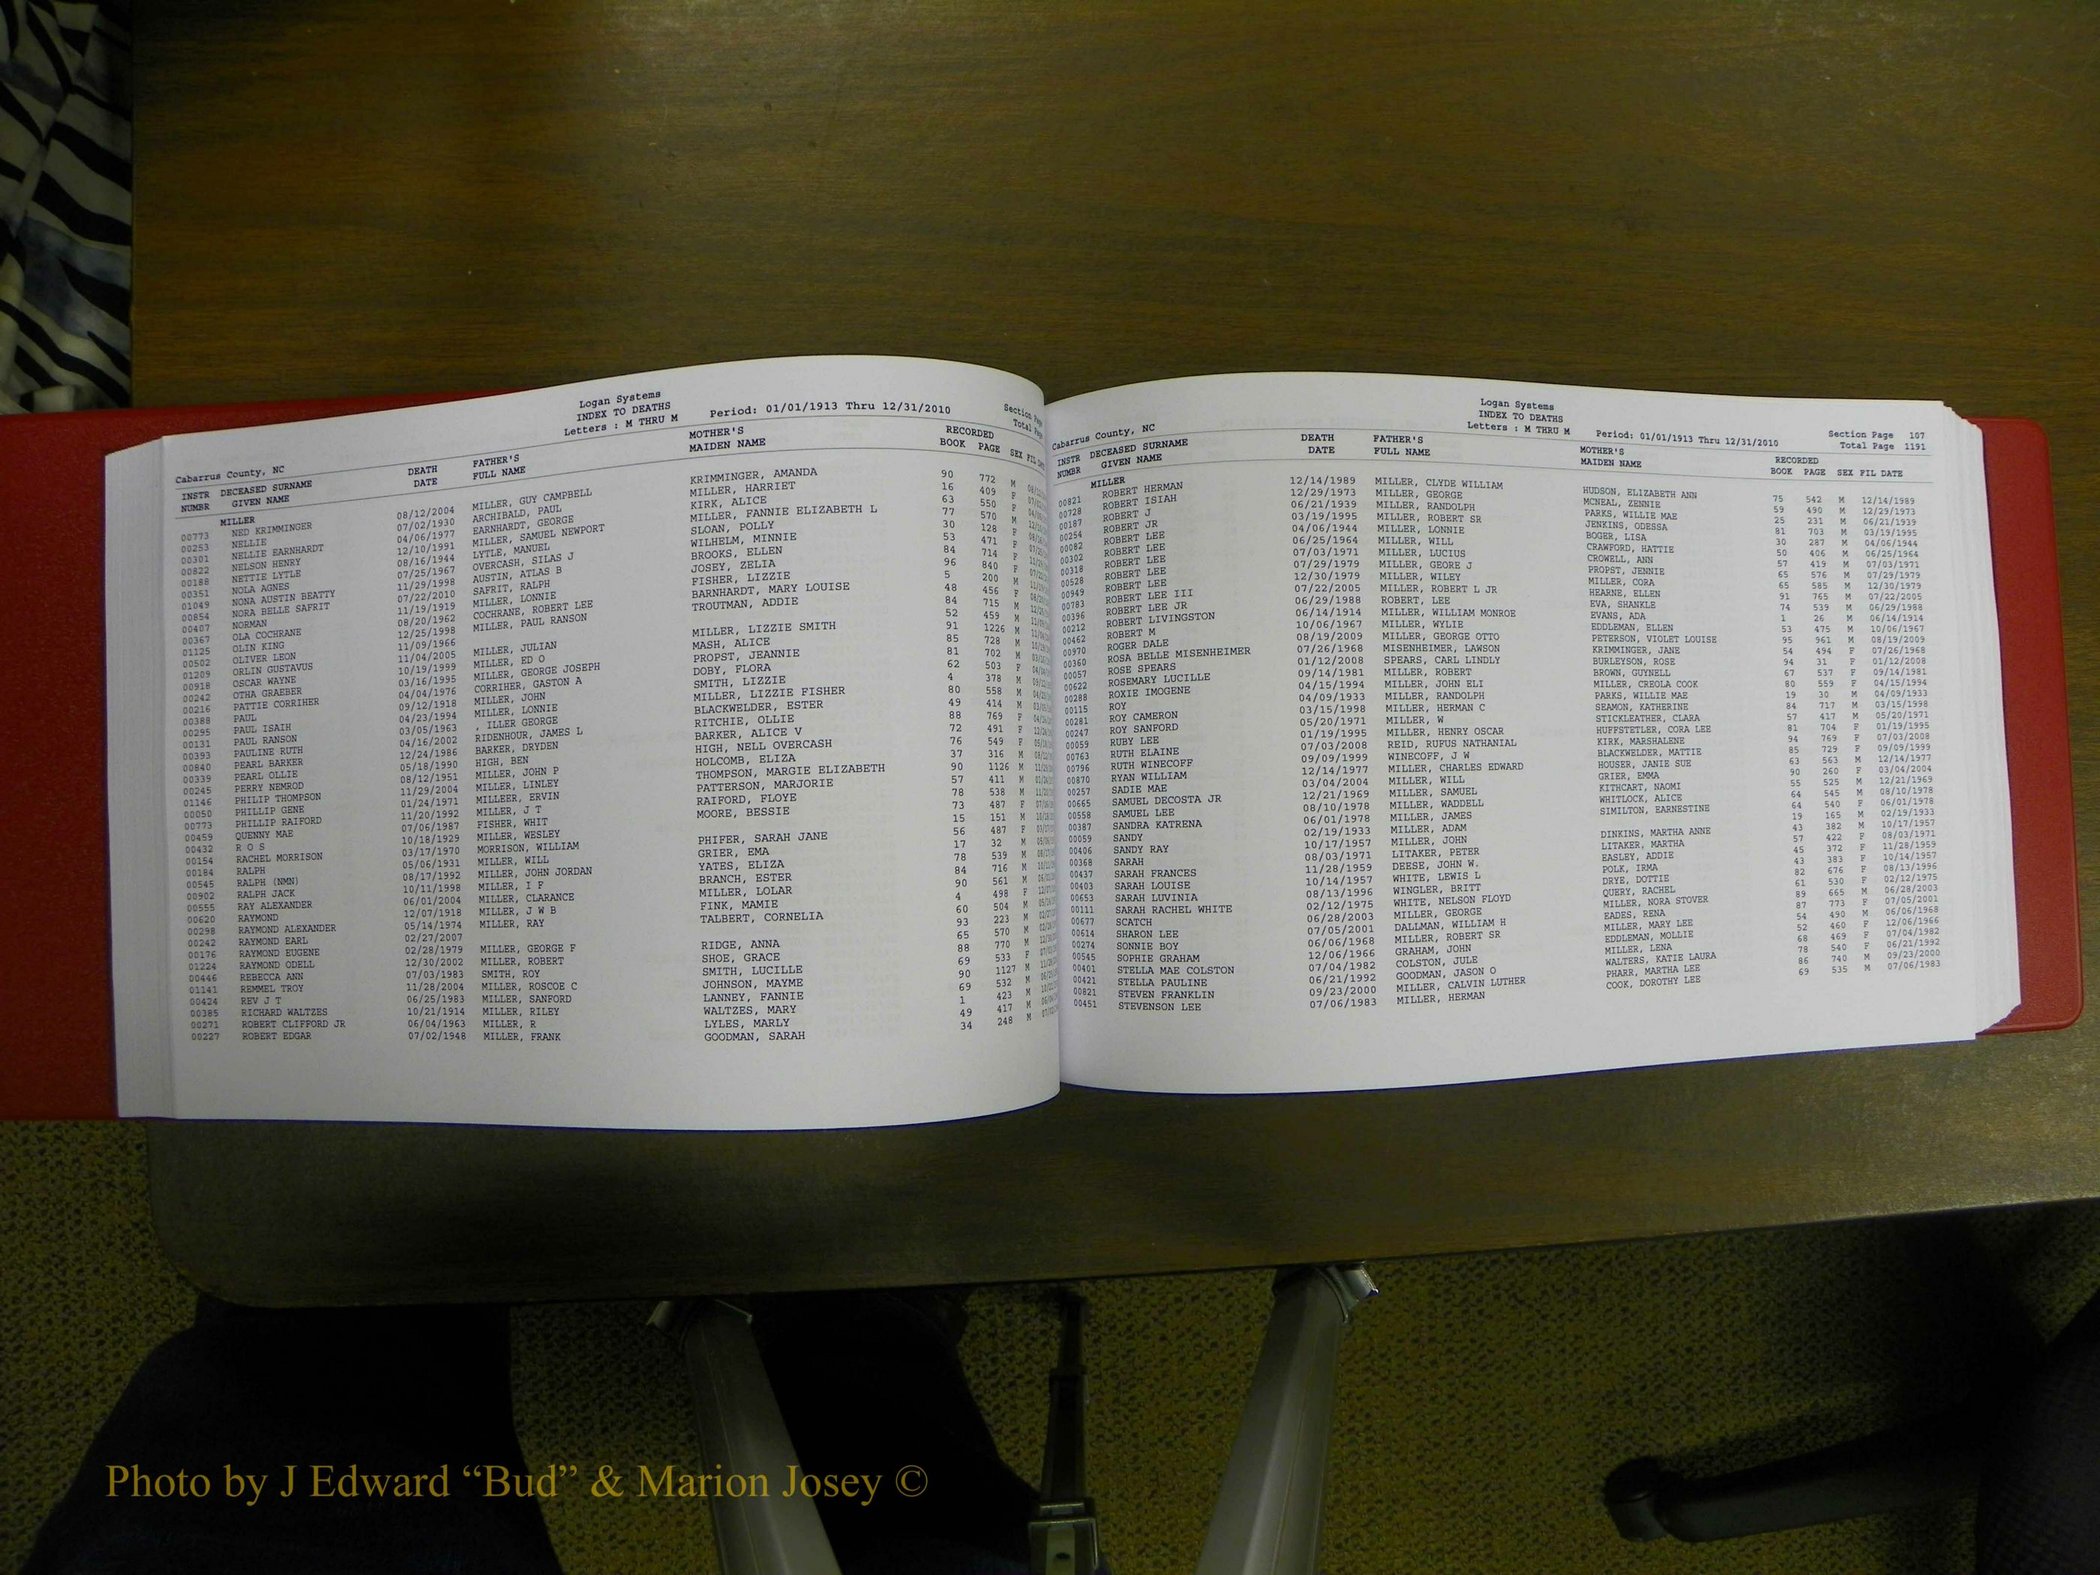 Logan Systems
INDEX TO DEATHS
Letters : M THRU M Period: 01/01/1913 Thru 12/31/2010 Section Page
Total Page
Cabarrus County, NC
INSTR DECEASED SURNAME DEATH FATHER'S MOTHER'S RECORDED
NUMBR GIVEN NAME DATE FULL NAME MAIDEN NAME BOOK PAGE SEX FIL DATE
MILLER
00773 NED KRIMMINGER 08/12/2004 MILLER, GUY CAMPBELL KRIMMINGER, AMANDA 90 772 M
00253 NELLIE 07/02/1930 ARCHIBALD, PAUL MILLER, HARRIET 16 409 F
00301 NELLIE EARNHARDT 04/06/1977 EARNHARDT, GEORGE KIRK, ALICE 63 550 F
00822 NELSON HENRY 12/10/1991 MILLER, SAMUEL NEWPORT MILLER, FANNIE ELIZABETH L 77 570 M
00188 NETTIE LYTLE 08/16/1944 LYTLE, MANUEL SLOAN, POLLY 30 128 F
00351 NOLA AGNES 07/25/1967 OVERCASH, SILAS J WILHELM, MINNIE 53 471 F
01049 NONA AUSTIN BEATTY 11/29/1998 AUSTIN, ATLAS B BROOKS, ELLEN 84 714 F
00854 NORA BELLE SAFRIT 07/22/2010 SAFRIT, RALPH JOSEY, ZELIA 96 840 F
00407 NORMAN 11/19/1919 MILLER, LONNIE FISHER, LIZZIE 5 200 M
00367 OLA COCHRANE 08/20/1962 COCHRANE, ROBERT LEE BARNHARDT, MARY LOUISE 48 456 F
01125 OLIN KING 12/25/1998 MILLER, PAUL RANSON TROUTMAN, ADDIE 84 715 M
00502 OLIVER LEON 11/09/1966 52 459 M
01209 ORLIN GUSTAVUS 11/04/2005 MILLER, JULIAN MILLER, LIZZIE SMITH 91 1226 M
00918 OSCAR WAYNE 10/19/1999 MILLER, ED O MASH, ALICE 85 728 M
00242 OTHA GRAEBER 03/16/1995 MILLER, GEORGE JOSEPH PROPST, JEANNIE 81 702 M
00216 PATTIE CORRIHER 04/04/1976 CORRIHER, GASTON A DOBY, FLORA 62 503 F
00388 PAUL 09/12/1918 MILLER, JOHN SMITH, LIZZIE 4 378 M
00295 PAUL ISAIH 04/23/1994 MILLER, LONNIE MILLER, LIZZIE FISHER 80 558 M
00131 PAUL RANSON 03/05/1963 , ILLER GEORGE BLACKWELDER, ESTER 49 414 M
00393 PAULINE RUTH 04/16/2002 RIDENHOUR, JAMES L RITCHIE, OLLIE 88 769 F
00840 PEARL BARKER 12/24/1986 BARKER, DRYDEN BARKER, ALICE V 72 491 F
00339 PEARL OLLIE 05/18/1990 HIGH, BEN HIGH, NELL OVERCASH 76 549 F
00245 PERRY NEMROD 08/12/1951 MILLER, JOHN P HOLCOMB, ELIZA 37 316 M
01146 PHILIP THOMPSON 11/29/2004 MILLER, LINLEY THOMPSON, MARGIE ELIZABETH 90 1126 M
00050 PHILLIP GENE 01/24/1971 MILLEER, ERVIN PATTERSON, MARJORIE 57 411 M
00773 PHILLIP RAIFORD 11/20/1992 MILLER, J T RAIFORD, FLOYE 78 538 M
00459 QUENNY MAE 07/06/1987 FISHER, WHIT MOORE, BESSIE 73 487 F
00432 R O S 10/18/1929 MILLER, WESLEY 15 151 M
00154 RACHEL MORRISON 03/17/1970 MORRISON, WILLIAM PHIFER, SARAH JANE 56 487 F
00184 RALPH 05/06/1931 MILLER, WILL GRIER, EMA 17 32 M
00545 RALPH (NMN) 08/17/1992 MILLER, JOHN JORDAN YATES, ELIZA 78 539 M
00902 RALPH JACK 10/11/1998 MILLER, I F BRANCH, ESTER 84 716 M
00555 RAY ALEXANDER 06/01/2004 MILLER, CLARANCE MILLER, LOLAR 90 561 M
00620 RAYMOND 12/07/1918 MILLER, J W B FINK, MAMIE 4 498 F
00298 RAYMOND ALEXANDER 05/14/1974 MILLER, RAY TALBERT, CORNELIA 60 504 M
00242 RAYMOND EARL 02/27/2007 93 223 M
00176 RAYMOND EUGENE 02/28/1979 MILLER, GEORGE F RIDGE, ANNA 65 570 M
01224 RAYMOND ODELL 12/30/2002 MILLER, ROBERT SHOE, GRACE 88 770 M
00446 REBECCA ANN 07/03/1983 SMITH, ROY SMITH, LUCILLE 69 533 F
01141 REMMEL TROY 11/28/2004 MILLER, ROSCOE C JOHNSON, MAYME 90 1127 M
00424 REV J T 06/25/1983 MILLER, SANFORD LANNEY, FANNIE 69 532 M
00385 RICHARD WALTZES 10/21/1914 MILLER, RILEY WALTZES, MARY 1 423 M
00271 ROBERT CLIFFORD JR 06/04/1963 MILLER, R LYLES, MARLY 49 417 M
00227 ROBERT EDGAR 07/02/1948 MILLER, FRANK GOODMAN, SARAH 34 248 M
Logan Systems
INDEX TO DEATHS
Letters : M THRU M Period: 01/01/1913 Thru 12/31/2010 Section Page 107
Total Page 1191
Cabarrus County, NC
INSTR DECEASED SURNAME DEATH FATHER'S MOTHER'S RECORDED
NUMBR GIVEN NAME DATE FULL NAME MAIDEN NAME BOOK PAGE SEX FIL DATE
MILLER
00821 ROBERT HERMAN 12/14/1989 MILLER, CLYDE WILLIAM HUDSON, ELIZABETH ANN 75 542 M 12/14/1989
00728 ROBERT ISIAH 12/29/1973 MILLER, GEORGE MCNEAL, ZENNIE 59 490 M 12/29/1973
00187 ROBERT J 06/21/1939 MILLER, RANDOLPH PARKS, WILLIE MAE 25 231 M 06/21/1939
00254 ROBERT JR 03/19/1995 MILLER, ROBERT SR JENKINS, ODESSA 81 703 M 03/19/1995
00082 ROBERT LEE 04/06/1944 MILLER, LONNIE BOGER, LISA 30 287 M 04/06/1944
00302 ROBERT LEE 06/25/1964 MILLER, WILL CRAWFORD, HATTIE 50 406 M 06/25/1964
00318 ROBERT LEE 07/03/1971 MILLER, LUCIUS CROWELL, ANN 57 419 M 07/03/1971
00528 ROBERT LEE 07/29/1979 MILLER, GEORE J PROPST, JENNIE 65 576 M 07/29/1979
00949 ROBERT LEE 12/30/1979 MILLER, WILEY MILLER, CORA 65 585 M 12/30/1979
00783 ROBERT LEE III 07/22/2005 MILLER, ROBERT L JR HEARNE, ELLEN 91 765 M 07/22/2005
00396 ROBERT LEE JR 06/29/1988 ROBERT, LEE EVA, SHANKLE 74 539 M 06/29/1988
00212 ROBERT LIVINGSTON 06/14/1914 MILLER, WILLIAM MONROE EVANS, ADA 1 26 M 06/14/1914
00462 ROBERT M 10/06/1967 MILLER, WYLIE EDDLEMAN, ELLEN 53 475 M 10/06/1967
00970 ROGER DALE 08/19/2009 MILLER, GEORGE OTTO PETERSON, VIOLET LOUISE 95 961 M 08/19/2009
00360 ROSA BELLE MISENHEIMER 07/26/1968 MISENHEIMER, LAWSON KRIMMINGER, JANE 54 494 F 07/26/1968
00057 ROSE SPEARS 01/12/2008 SPEARS, CARL LINDLY BURLEYSON, ROSE 94 31 F 01/12/2008
00622 ROSEMARY LUCILLE 09/14/1981 MILLER, ROBERT BROWN, GUYNELL 67 537 F 09/14/1981
00288 ROXIE IMOGENE 04/15/1994 MILLER, JOHN ELI MILLER, CREOLA COOK 80 559 F 04/15/1994
00115 ROY 04/09/1933 MILLER, RANDOLPH PARKS, WILLIE MAE 19 30 M 04/09/1933
00281 ROY CAMERON 03/15/1998 MILLER, HERMAN C SEAMON, KATHERINE 84 717 M 03/15/1998
00247 ROY SANFORD 05/20/1971 MILLER, W STICKLEATHER, CLARA 57 417 M 05/20/1971
00059 RUBY LEE 01/19/1995 MILLER, HENRY OSCAR HUFFSTETLER, CORA LEE 81 704 F 01/19/1995
00763 RUTH ELAINE 07/03/2008 REID, RUFUS NATHANIAL KIRK, MARSHALENE 94 769 F 07/03/2008
00796 RUTH WINECOFF 09/09/1999 WINECOFF, J W BLACKWELDER, MATTIE 85 729 F 09/09/1999
00870 RYAN WILLIAM 12/14/1977 MILLER, CHARLES EDWARD HOUSER, JANIE SUE 63 563 M 12/14/1977
00257 SADIE MAE 03/04/2004 MILLER, WILL GRIER, EMMA 90 260 F 03/04/2004
00665 SAMUEL DECOSTA JR 12/21/1969 MILLER, SAMUEL KITHCART, NAOMI 55 525 M 12/21/1969
00558 SAMUEL LEE 08/10/1978 MILLER, WADDELL WHITLOCK, ALICE 64 545 M 08/10/1978
00387 SANDRA KATRENA 06/01/1978 MILLER, JAMES SIMILTON, EARNESTINE 64 540 F 06/01/1978
00059 SANDY 02/19/1933 MILLER, ADAM 19 165 M 02/19/1933
00406 SANDY RAY 10/17/1957 MILLER, JOHN DINKINS, MARTHA ANNE 43 382 M 10/17/1957
00368 SARAH 08/03/1971 LITAKER, PETER LITAKER, MARTHA 57 422 F 08/03/1971
00437 SARAH FRANCES 11/28/1959 DEESE, JOHN W. EASLEY, ADDIE 45 372 F 11/28/1959
00403 SARAH LOUISE 10/14/1957 WHITE, LEWIS L POLK, IRMA 43 383 F 10/14/1957
00653 SARAH LUVINIA 08/13/1996 WINGLER, BRITT DRYE, DOTTIE 82 676 F 08/13/1996
00111 SARAH RACHEL WHITE 02/12/1975 WHITE, NELSON FLOYD QUERY, RACHEL 61 530 F 02/12/1975
00677 SCATCH 06/28/2003 MILLER, GEORGE MILLER, NORA STOVER 89 665 M 06/28/2003
00614 SHARON LEE 07/05/2001 DALLMAN, WILLIAM H EADES, RENA 87 773 F 07/05/2001
00274 SONNIE BOY 06/06/1968 MILLER, ROBERT SR MILLER, MARY LEE 54 490 M 06/06/1968
00545 SOPHIE GRAHAM 12/06/1966 GRAHAM, JOHN EDDLEMAN, MOLLIE 52 460 F 12/06/1966
00401 STELLA MAE COLSTON 07/04/1982 COLSTON, JULE MILLER, LENA 68 469 F 07/04/1982
00421 STELLA PAULINE 06/21/1992 GOODMAN, JASON O WALTERS, KATIE LAURA 78 540 F 06/21/1992
00821 STEVEN FRANKLIN 09/23/2000 MILLER, CALVIN LUTHER PHARR, MARTHA LEE 86 740 M 09/23/2000
00451 STEVENSON LEE 07/06/1983 MILLER, HERMAN COOK, DOROTHY LEE 69 535 M 07/06/1983
Photo by J Edward “Bud” & Marion Josey ©